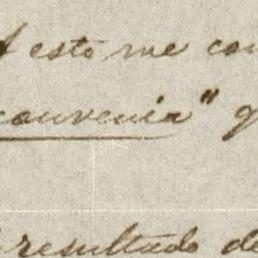 esto me con
convenia" q
resultado de